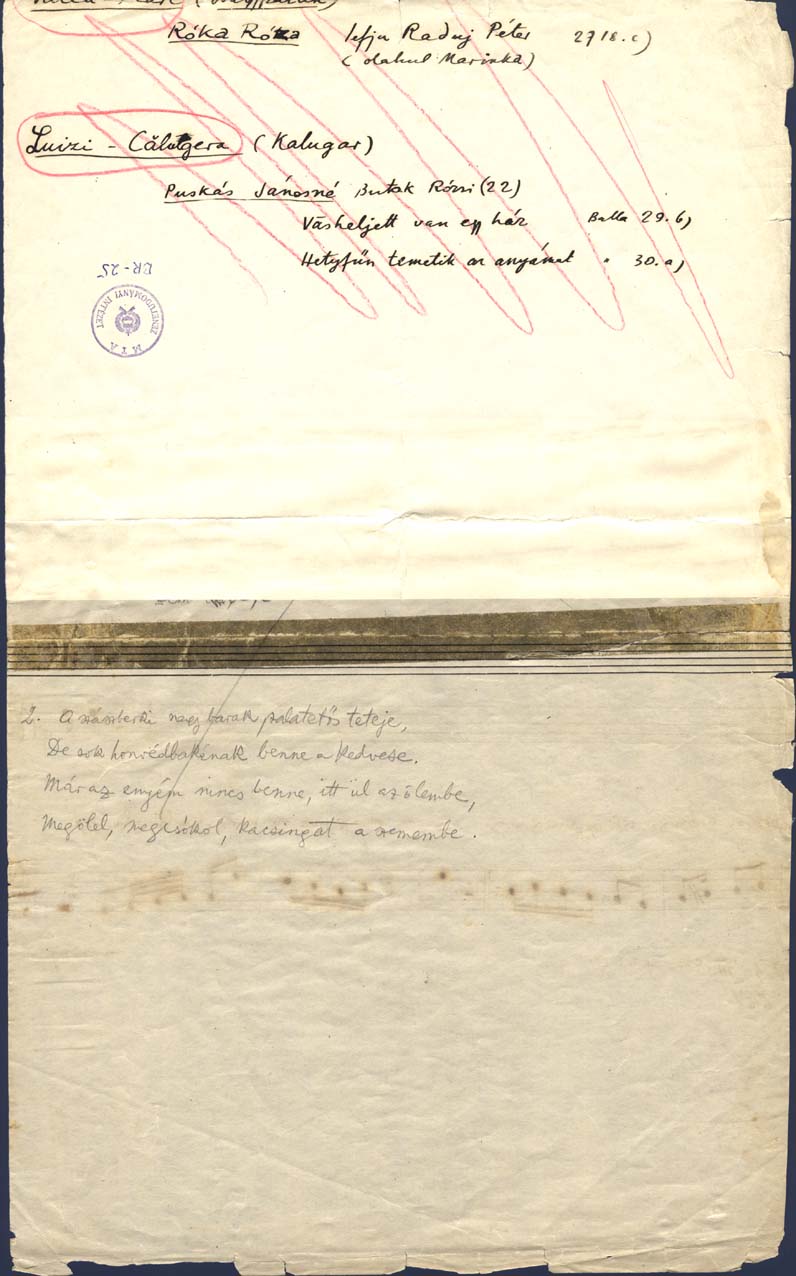 Róka Róza Ifju Raduj Péter 2718.c)
(olahul Marinka)
Luizi - Călugera (Kalugar)
Puskás Jánosné Butak Rózsi (22)
Vásheljett van egy ház Balla 29.b)
Hetyfün temetik az anyámat " 30.a)
BR-25
MTA NÉPZENETUDOMÁNYI INTÉZET
2. A nagy barak palatetős teteje,
De sok honvédbakának benne a kedvese.
Már az enyém nincs benne, itt ül az ölembe,
Megölel, megcsókol, kacsingat a szemembe.